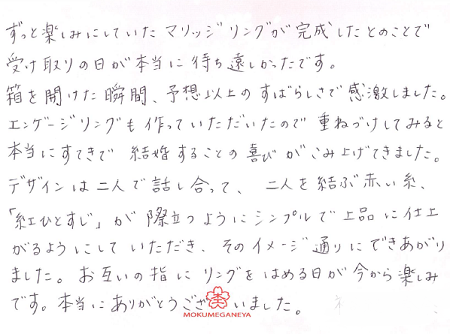 ずっと楽しみにしていたマリッジリングが完成したとのことで
受け取りの日が本当に待ち遠しかったです。
箱を開けた瞬間、予想以上のすばらしさで感激しました。
エンゲージリングも作っていただいたので重ねづけしてみると
本当にすてきで結婚することの喜びがこみ上げてきました。
デザインは二人で話し合って、二人を結ぶ赤い糸、
「紅ひとすじ」が際立つようにシンプルで上品に仕上
がるようにしていただき、そのイメージ通りにできあがり
ました。お互いの指にリングをはめる日が今から楽しみ
です。本当にありがとうございました。
MOKUMEGANEYA